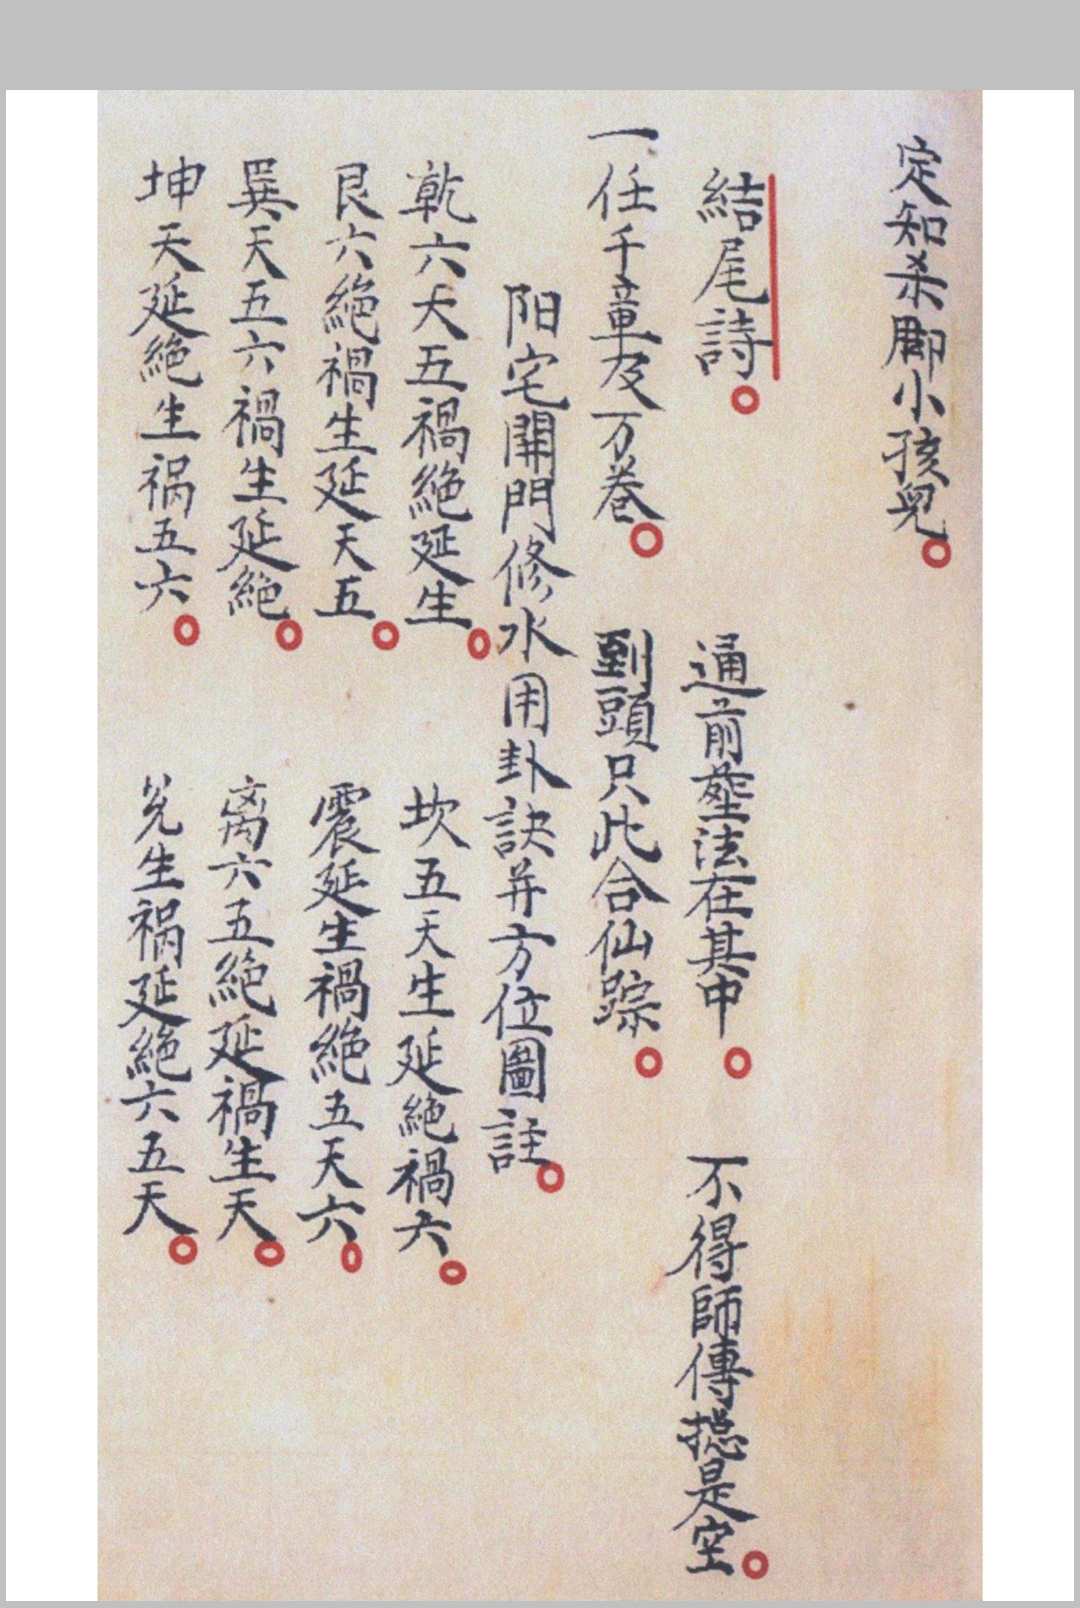 定知杀郡小孩兒
結尾詩 通前塟法在其中 不得師傳摠是空
一任千章及万卷 到頭只此合仙踪
阳宅開門修水用卦訣并方位圖註
乾六天五禍絶延生 坎五天生延絶禍六
艮六絶禍生延天五 震延生禍絶五天六
巽天五六禍生延絶 离六五絶延禍生天
坤天延絶生祸五六 兑生祸延絶六五天